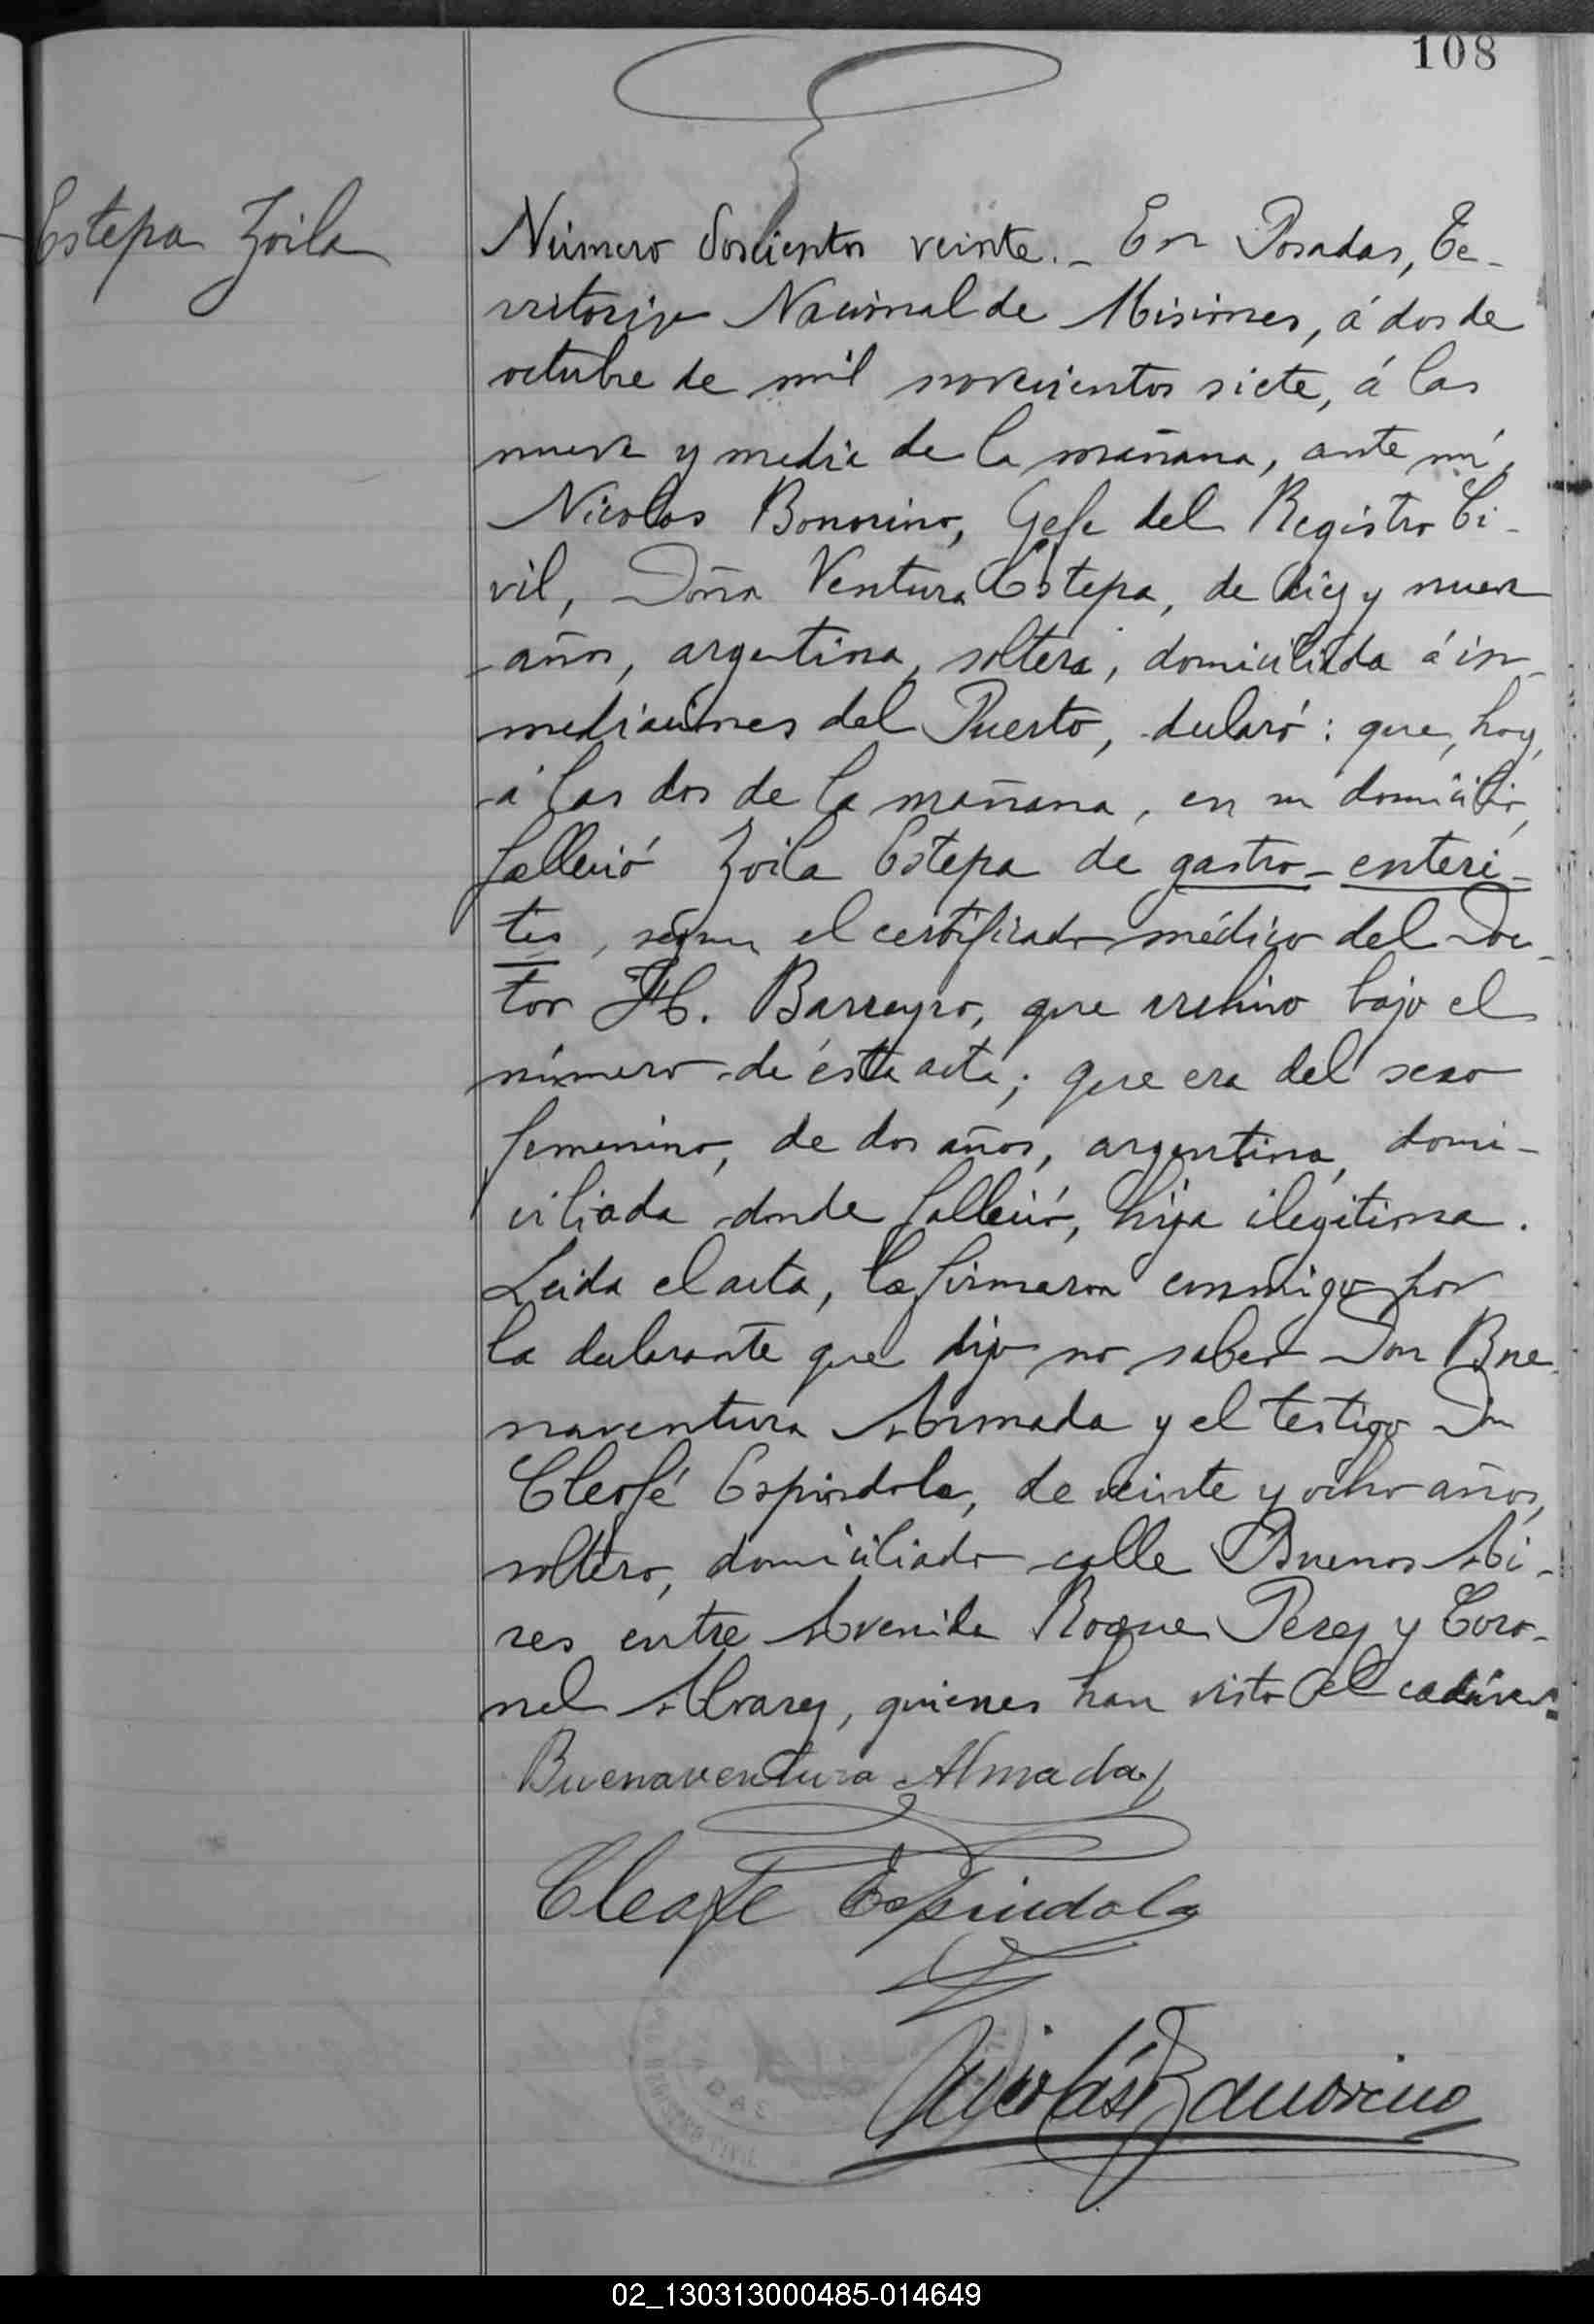 108
Estepa Zoila
Número doscientos veinte._ En Posadas, Te-
rritorio Nacional de Misiones, á dos de
octubre de mil novecientos siete, á las
nueve y media de la mañana, ante mí,
Nicolas Bonorino, Gefe del Registro Ci-
vil, Doña Ventura Estepa, de diez y nueve
años, argentina, soltera, domiciliada á in-
mediaciones del Puerto, declaró: que, hoy,
á las dos de la mañana, en su domicilio,
falleció Zoila Estepa de gastro-enteri-
tis, según el certificado médico del Doc-
tor H. Barreyro, que archivo bajo el
número de ésta acta; que era del sexo
femenino, de dos años, argentina, domi-
ciliada donde falleció, hija ilegitima.
Leida el acta, la firmaron conmigo por
la declarante que dijo no saber Don Bue-
naventura Armada y el testigo Don
Cleofé Espindola, de veinte y ocho años,
soltero, domiciliado calle Buenos Ai-
res entre Avenida Roque Perez y Coro-
nel Alvarez, quienes han visto el cadáver.
Buenaventura Almada
Cleofe Espindola
Nicolás Bonorino
02_130313000485-014649